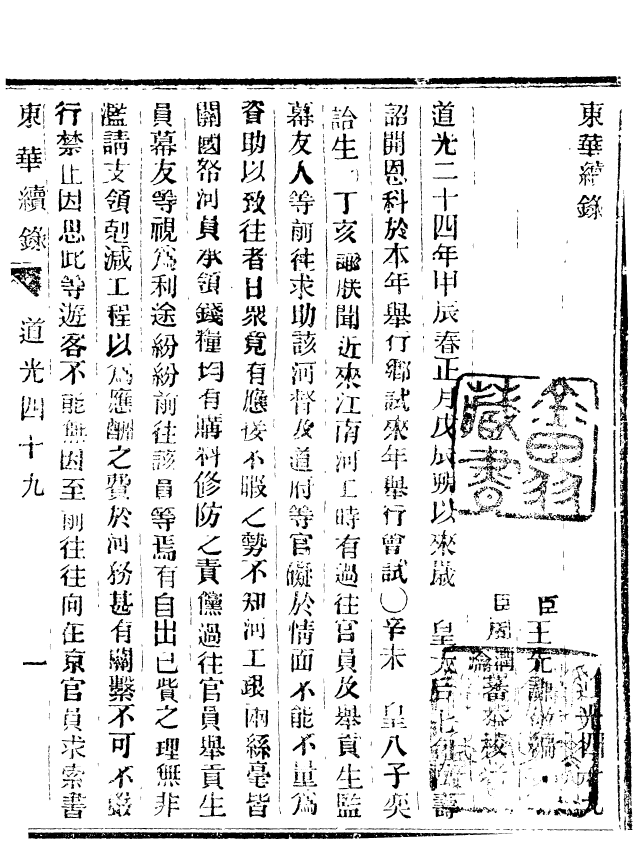 東華續錄
道光四十九
臣王先謙敬編
臣周潤蕃恭校
道光二十四年甲辰春正月戊辰朔以來歲 皇太后七旬萬壽
詔開恩科於本年舉行鄉試來年舉行會試〇辛未 皇八子奕
詥生 丁亥諭朕聞近來江南河工時有過往官員及舉貢生監
幕友人等前往求助該河督及道府等官礙於情面不能不量爲
資助以致往者日衆竟有應接不暇之勢不知河工銀兩絲毫皆
關國帑河員承領錢糧均有購料修防之責儻過往官員舉貢生
員幕友等視爲利途紛紛前往該員等焉有自出己貲之理無非
濫請支領剋減工程以爲應酬之費於河務甚有關繫不可不嚴
行禁止因思此等遊客不能無因至前往往向在京官員求索書
東華續錄 道光四十九 一